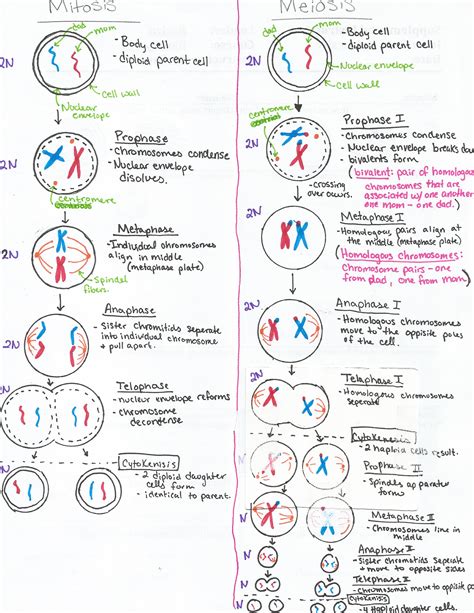 Mitosis
dad
mom
- Body cell
- diploid parent cell
2N
cell wall
Nuclear
envelope
Prophase
- Chromosomes condense
- Nuclear envelope
disolves.
2N
centromere
Metaphase
- Individual chromosomes
align in middle
(metaphase plate)
2N
Spindel
fibers.
Anaphase
- Sister Chromitids seperate
into individual chromosome
+ pull apart.
2N
Telophase
- nuclear envelope reforms
- chromosome
decondense
2N
Cytokenisis
- 2 diploid daughter
cells form
- identical to parent.
N
Meiosis
dad
mom
- Body cell
- diploid parent cell
2N
Nuclear envelope
cell wall
centromere
Prophase I
- Chromosomes condense
- Nuclear envelope breaks
- bivalents form
(bivalent: pair of homologous
chromosomes that are
associated w/ one another
one mom - one dad.)
2N
- crossing
over occurs.
Metaphase I
- Homologous pairs align at
the middle (metaphase plate)
(Homologous chromosomes:
Chromosome pairs - one
from dad, one from mom)
2N
Anaphase I
- Homologous chromosomes
move to the oppisite poles
of the cell.
2N
Telaphase I
- Homologous chromosomes
seperate
2N
Cytokenesis
- 2 haploid cells result.
N
Prophase II
- Spindles apparatus
forms
N
Metaphase II
- Chromosomes line in
middle
N
Anaphase II
- Sister chromitids seperate
+ move to opposite sides
N
Telephase II
- Chromosomes move to opposite
N
Cytokinesis
- 4 Haploid daughter cells